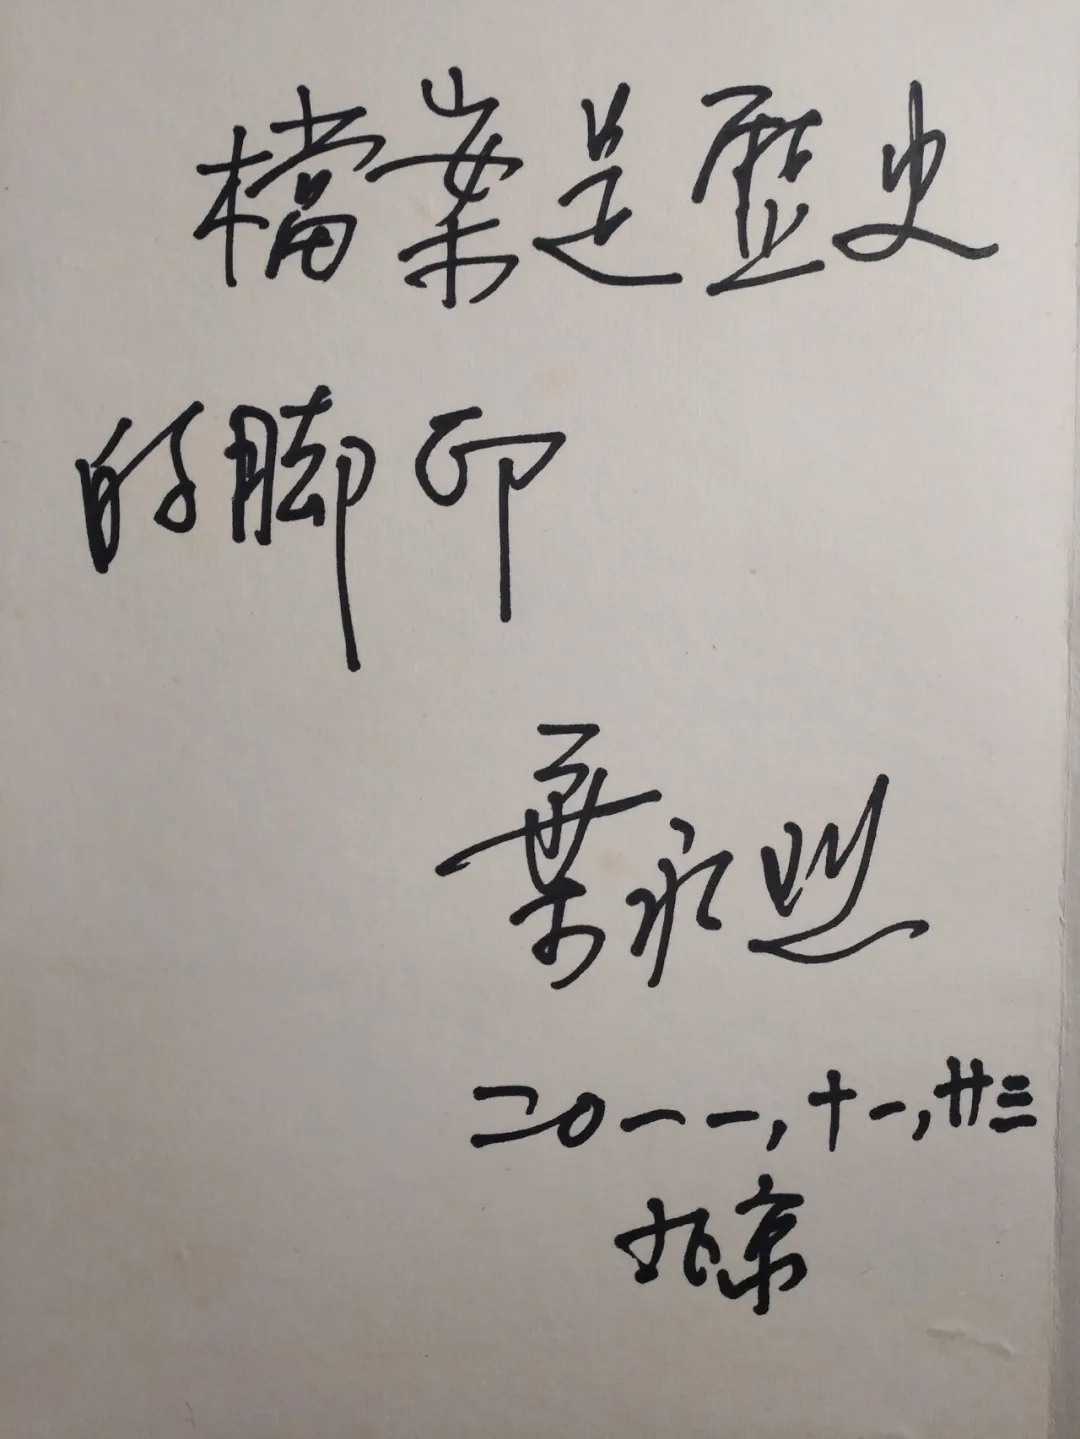 檔案是歷史
的脚印
葉永烈
二〇一一,十一,廿三
北京